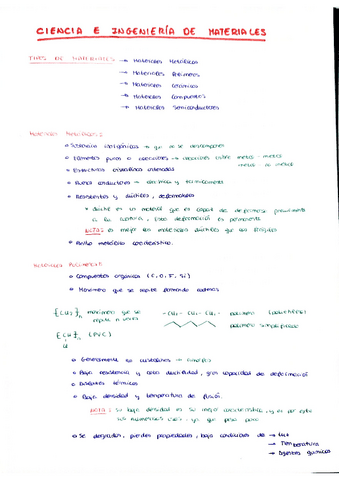 CIENCIA E INGENIERÍA DE MATERIALES
TIPOS DE MATERIALES → Materiales Metálicos
→ Materiales Polímeros
→ Materiales Cerámicos
→ Materiales Compuestos
→ Materiales Semiconductores
MATERIALES METÁLICOS
Sustancias inorgánicas → que no se descomponen
Elementos puros o aleaciones → metal - metal
metal - no metal
Estructura cristalina ordenada
Buenos conductores → eléctrica y térmicamente
Resistentes y dúctiles, deformables
dúctil es un material que es capaz de deformarse
a la rotura, esa deformación es permanente
NOTA: es mejor los materiales dúctiles que los frágiles
Brillo metálico característico.
MATERIALES POLIMÉRICOS
Compuestos orgánicos (C, O, F, Si)
Monómero que se repite formando cadenas
monómero que se
repite n veces
- CH₂ - CH₂ - CH₂ -
polímero
(PVC)
Generalmente no cristalinos → amorfos
Baja resistencia y alta ductilidad, gran capacidad de deformación
Aislantes térmicos
Baja densidad y temperatura de fusión.
NOTA: Su baja densidad es su mejor característica, y es por esto
sus numerosos usos, ya que pesa poco
Se degradan, pierden propiedades, bajo condiciones de → Luz
→ Temperatura
→ Agentes químicos